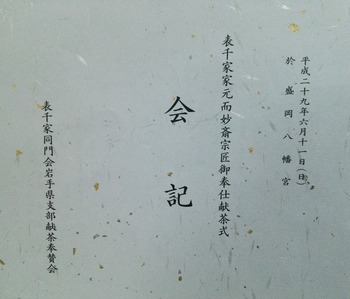 平成二十九年六月十一日(日)
於盛岡八幡宮
表千家家元而妙斎宗匠御奉仕献茶式
会記
表千家同門会岩手県支部献茶奉賛会